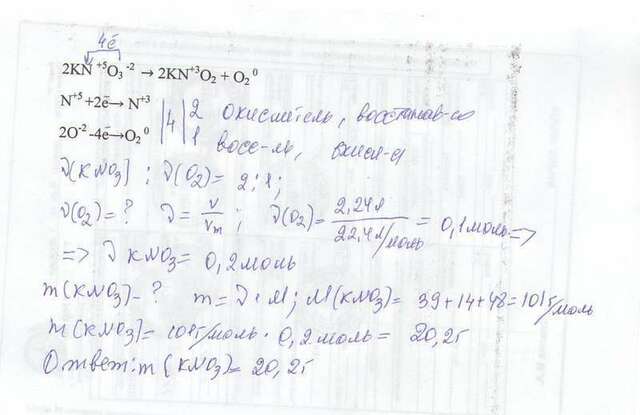 4ē
2KN⁺⁵O₃⁻² → 2KN⁺³O₂ + O₂⁰
N⁺⁵ +2ē → N⁺³ |4| 2 окислитель, восстанав-ся
2O⁻² -4ē→O₂⁰ 1 восс-ль, окисл-я
ν(KNO₃) : ν(O₂) = 2:1;
ν(O₂) = ? ν = V/Vm ; ν(O₂) = 2,24л/22,4л/моль = 0,1моль =>
=> ν KNO₃ = 0,2моль
m(KNO₃) - ? m = ν · M; M(KNO₃) = 39+14+48=101г/моль
m(KNO₃) = 101г/моль · 0,2моль = 20,2г
Ответ: m(KNO₃) = 20,2г